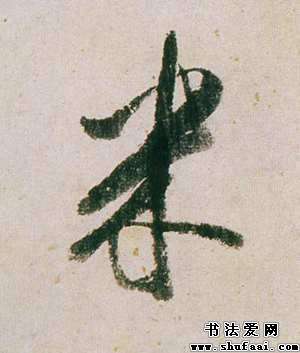 米
书法爱网
www.shufaai.com